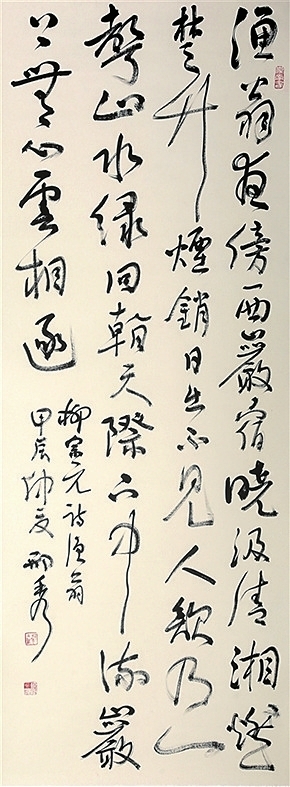 漁翁夜傍西巖宿曉汲清湘燃
楚竹煙銷日出不見人欸乃一
聲山水綠回看天際下中流巖
上無心雲相逐
柳宗元詩漁翁
甲辰仲夏邢秀